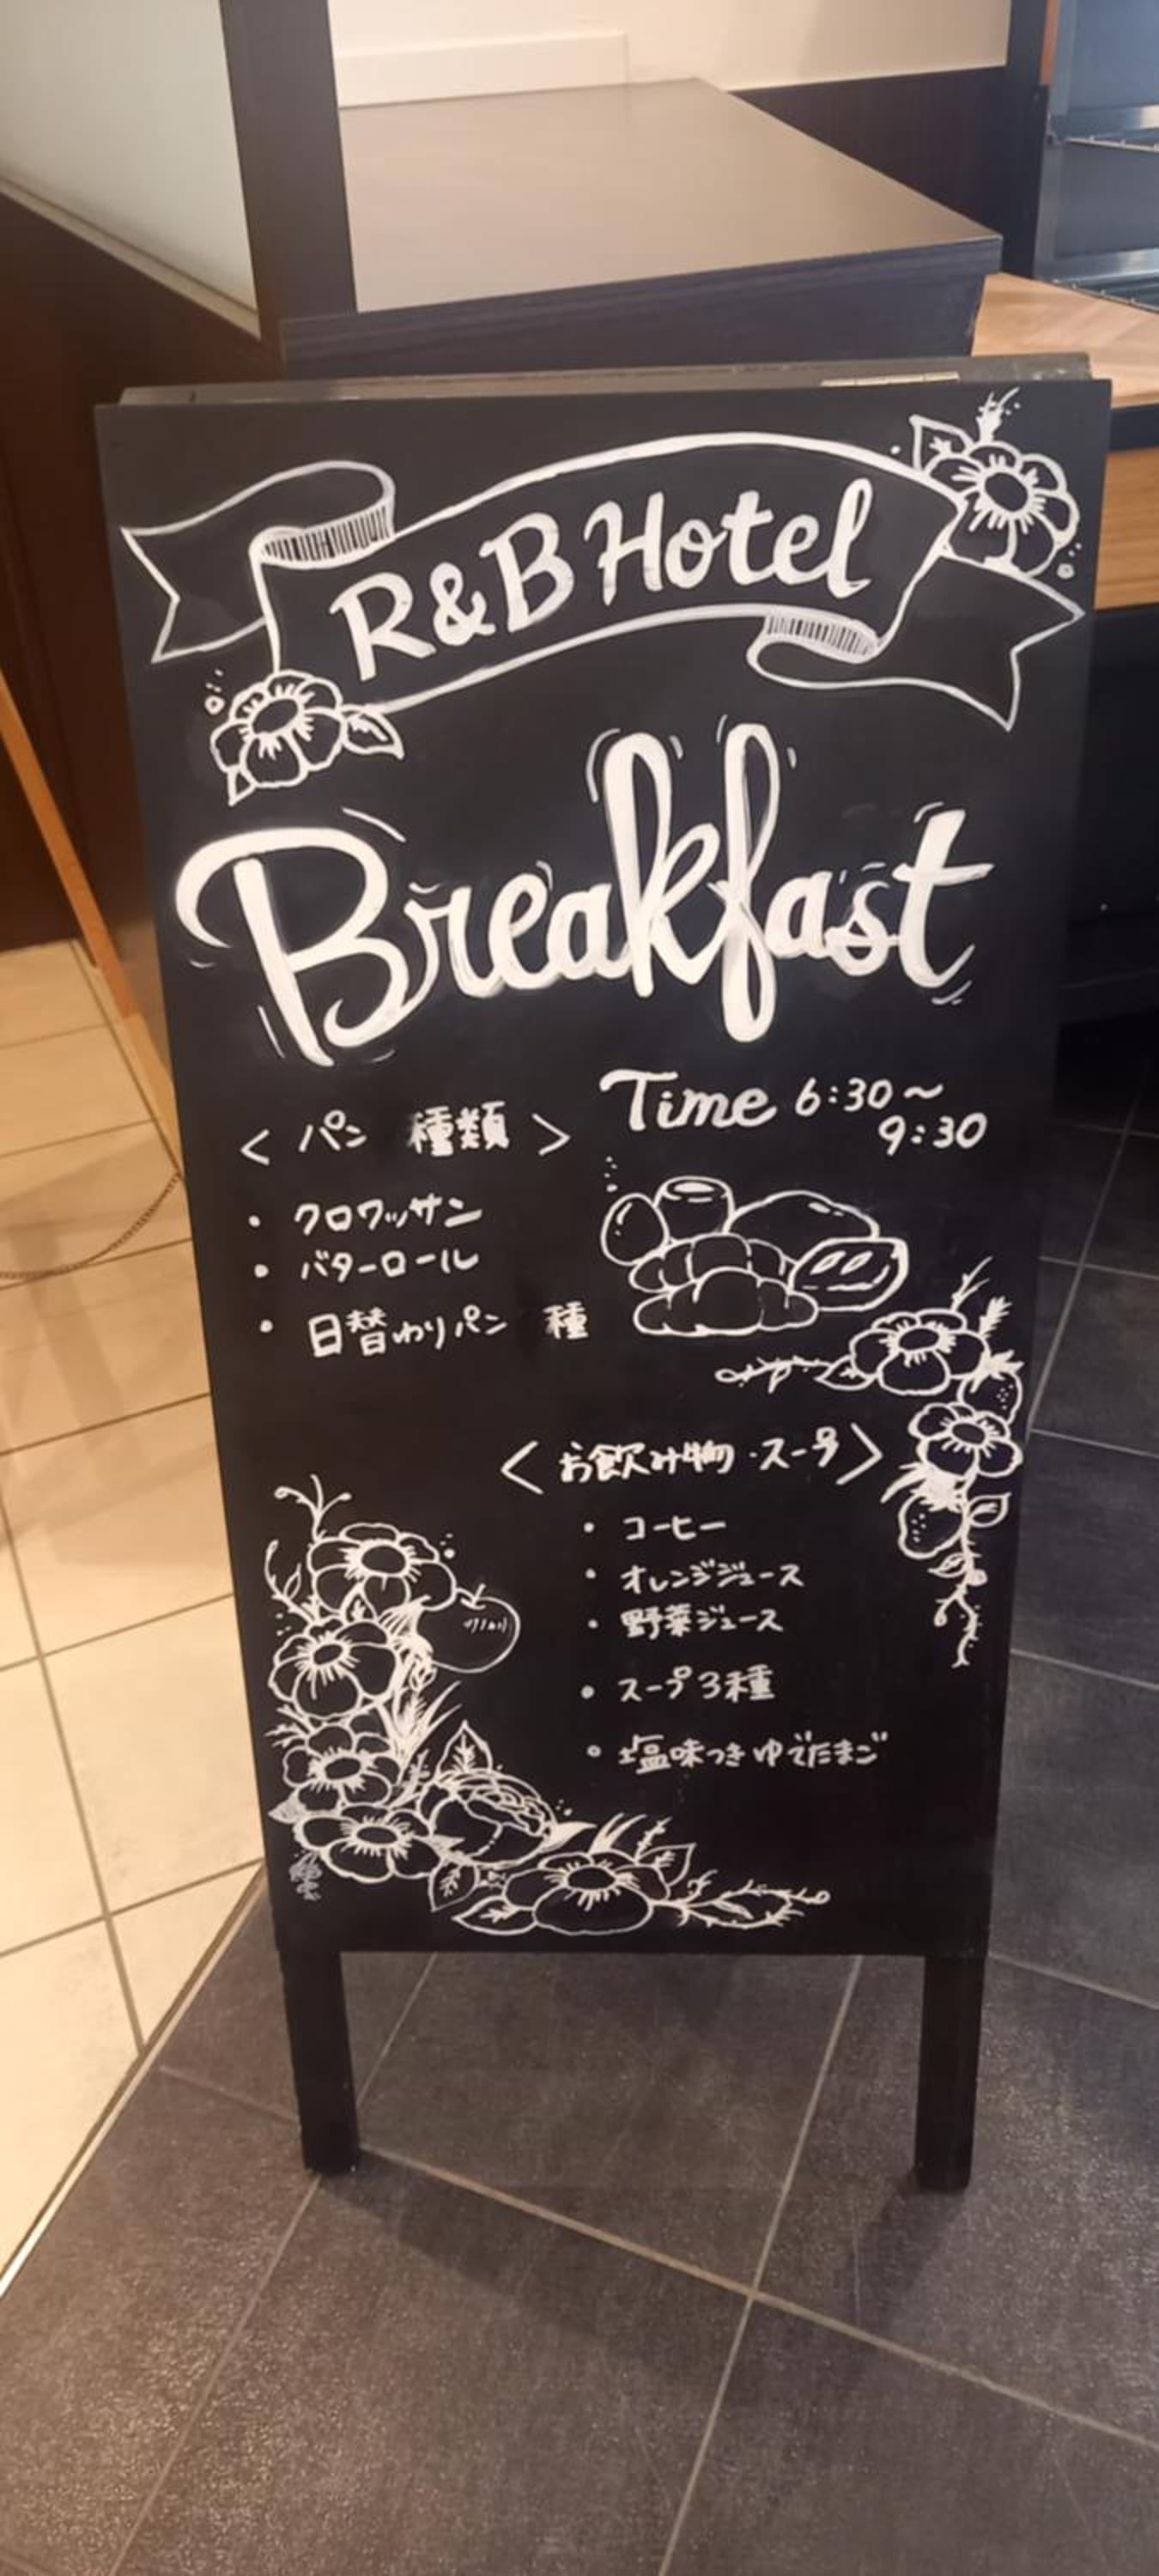 R&B Hotel
Breakfast
Time 6:30～
9:30
< パン 種類 >
・クロワッサン
・バターロール
・日替わりパン 種
< お飲み物・スープ >
・コーヒー
・オレンジジュース
・野菜ジュース
・スープ3種
・塩味つきゆでたまご